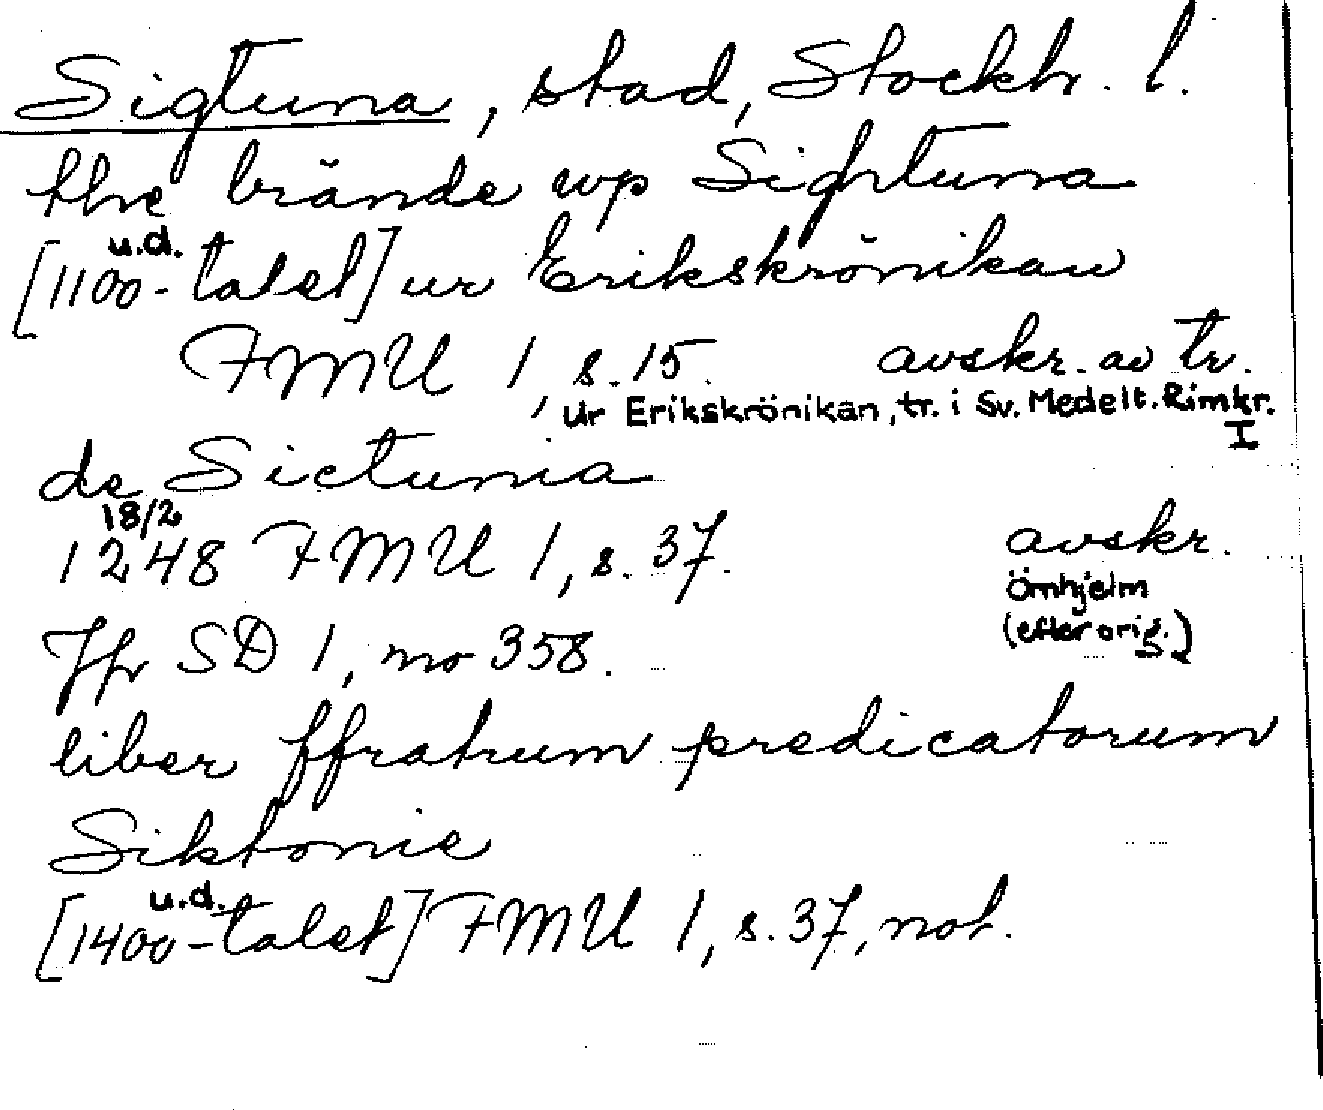 Sigtuna, stad, Stockh. l.
the brände wp Sightuna
u.d.
[1100-talet] ur Erikskrönikan
FMU 1, s. 15. avskr. av tr.
, Ur Erikskrönikan, tr. i Sv. Medelt. Rimkr.
I
de Sictunia
18/2
1248 FMU 1, s. 37. avskr.
Örnhjelm
Jfr SD 1, no 358. (efter orig.)
liber ffratrum predicatorum
Siktonie
u.d.
[1400-talet] FMU 1, s. 37, not.